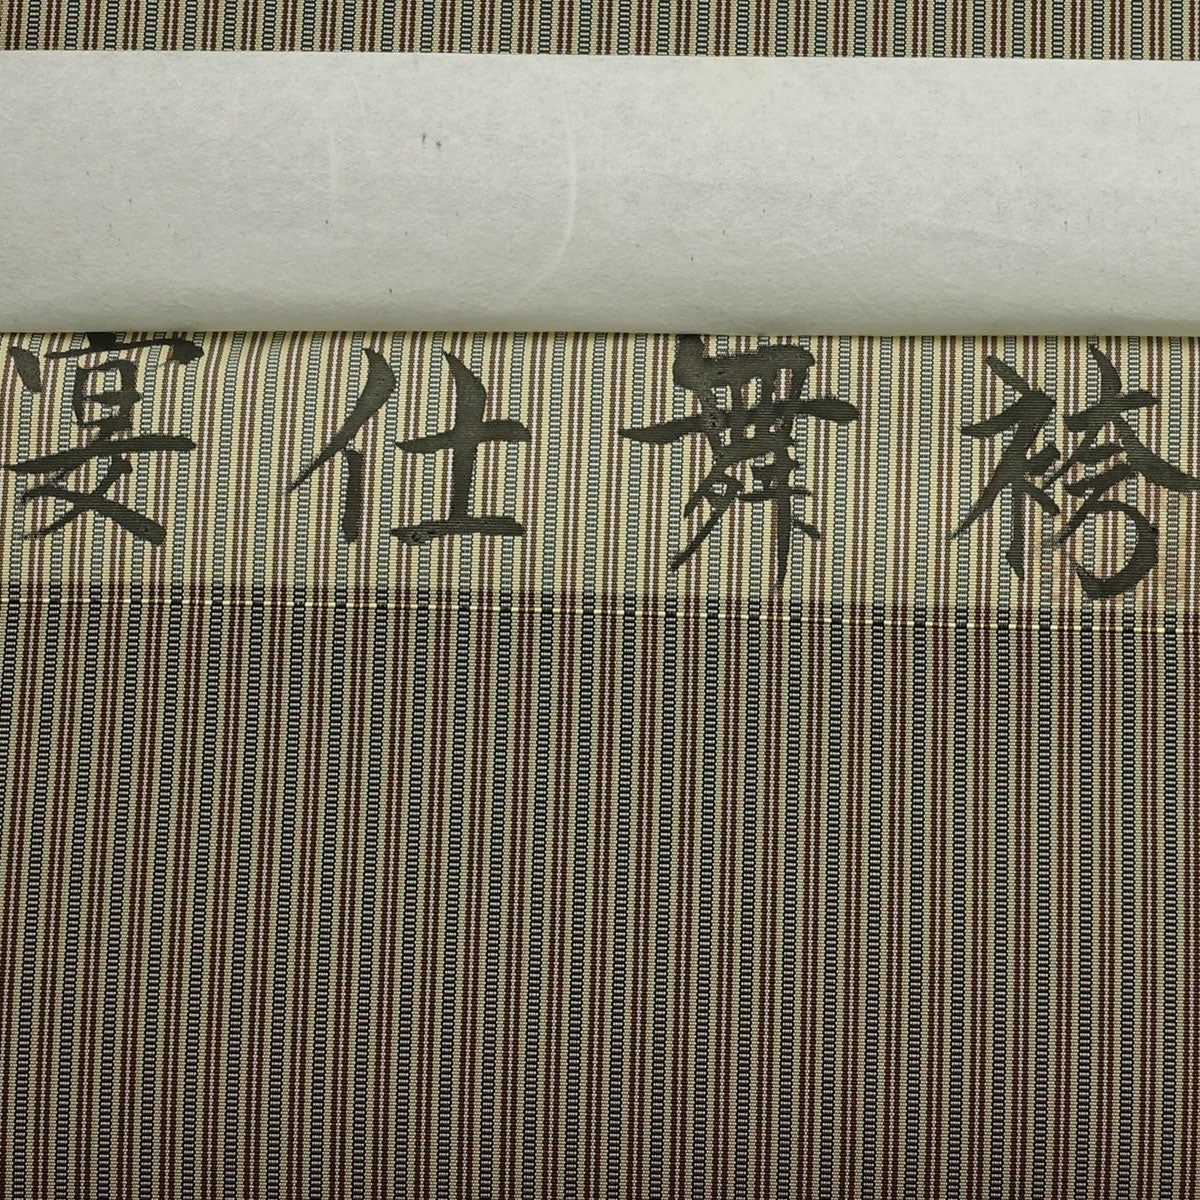 宴仕舞袴